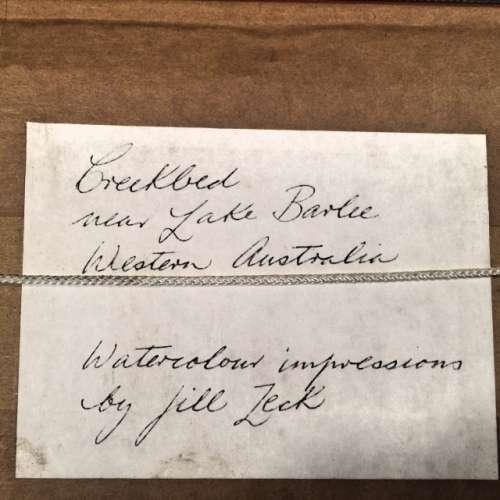 Creekbed
near Lake Barlee
Western Australia
Watercolour impressions
by Jill Zeck